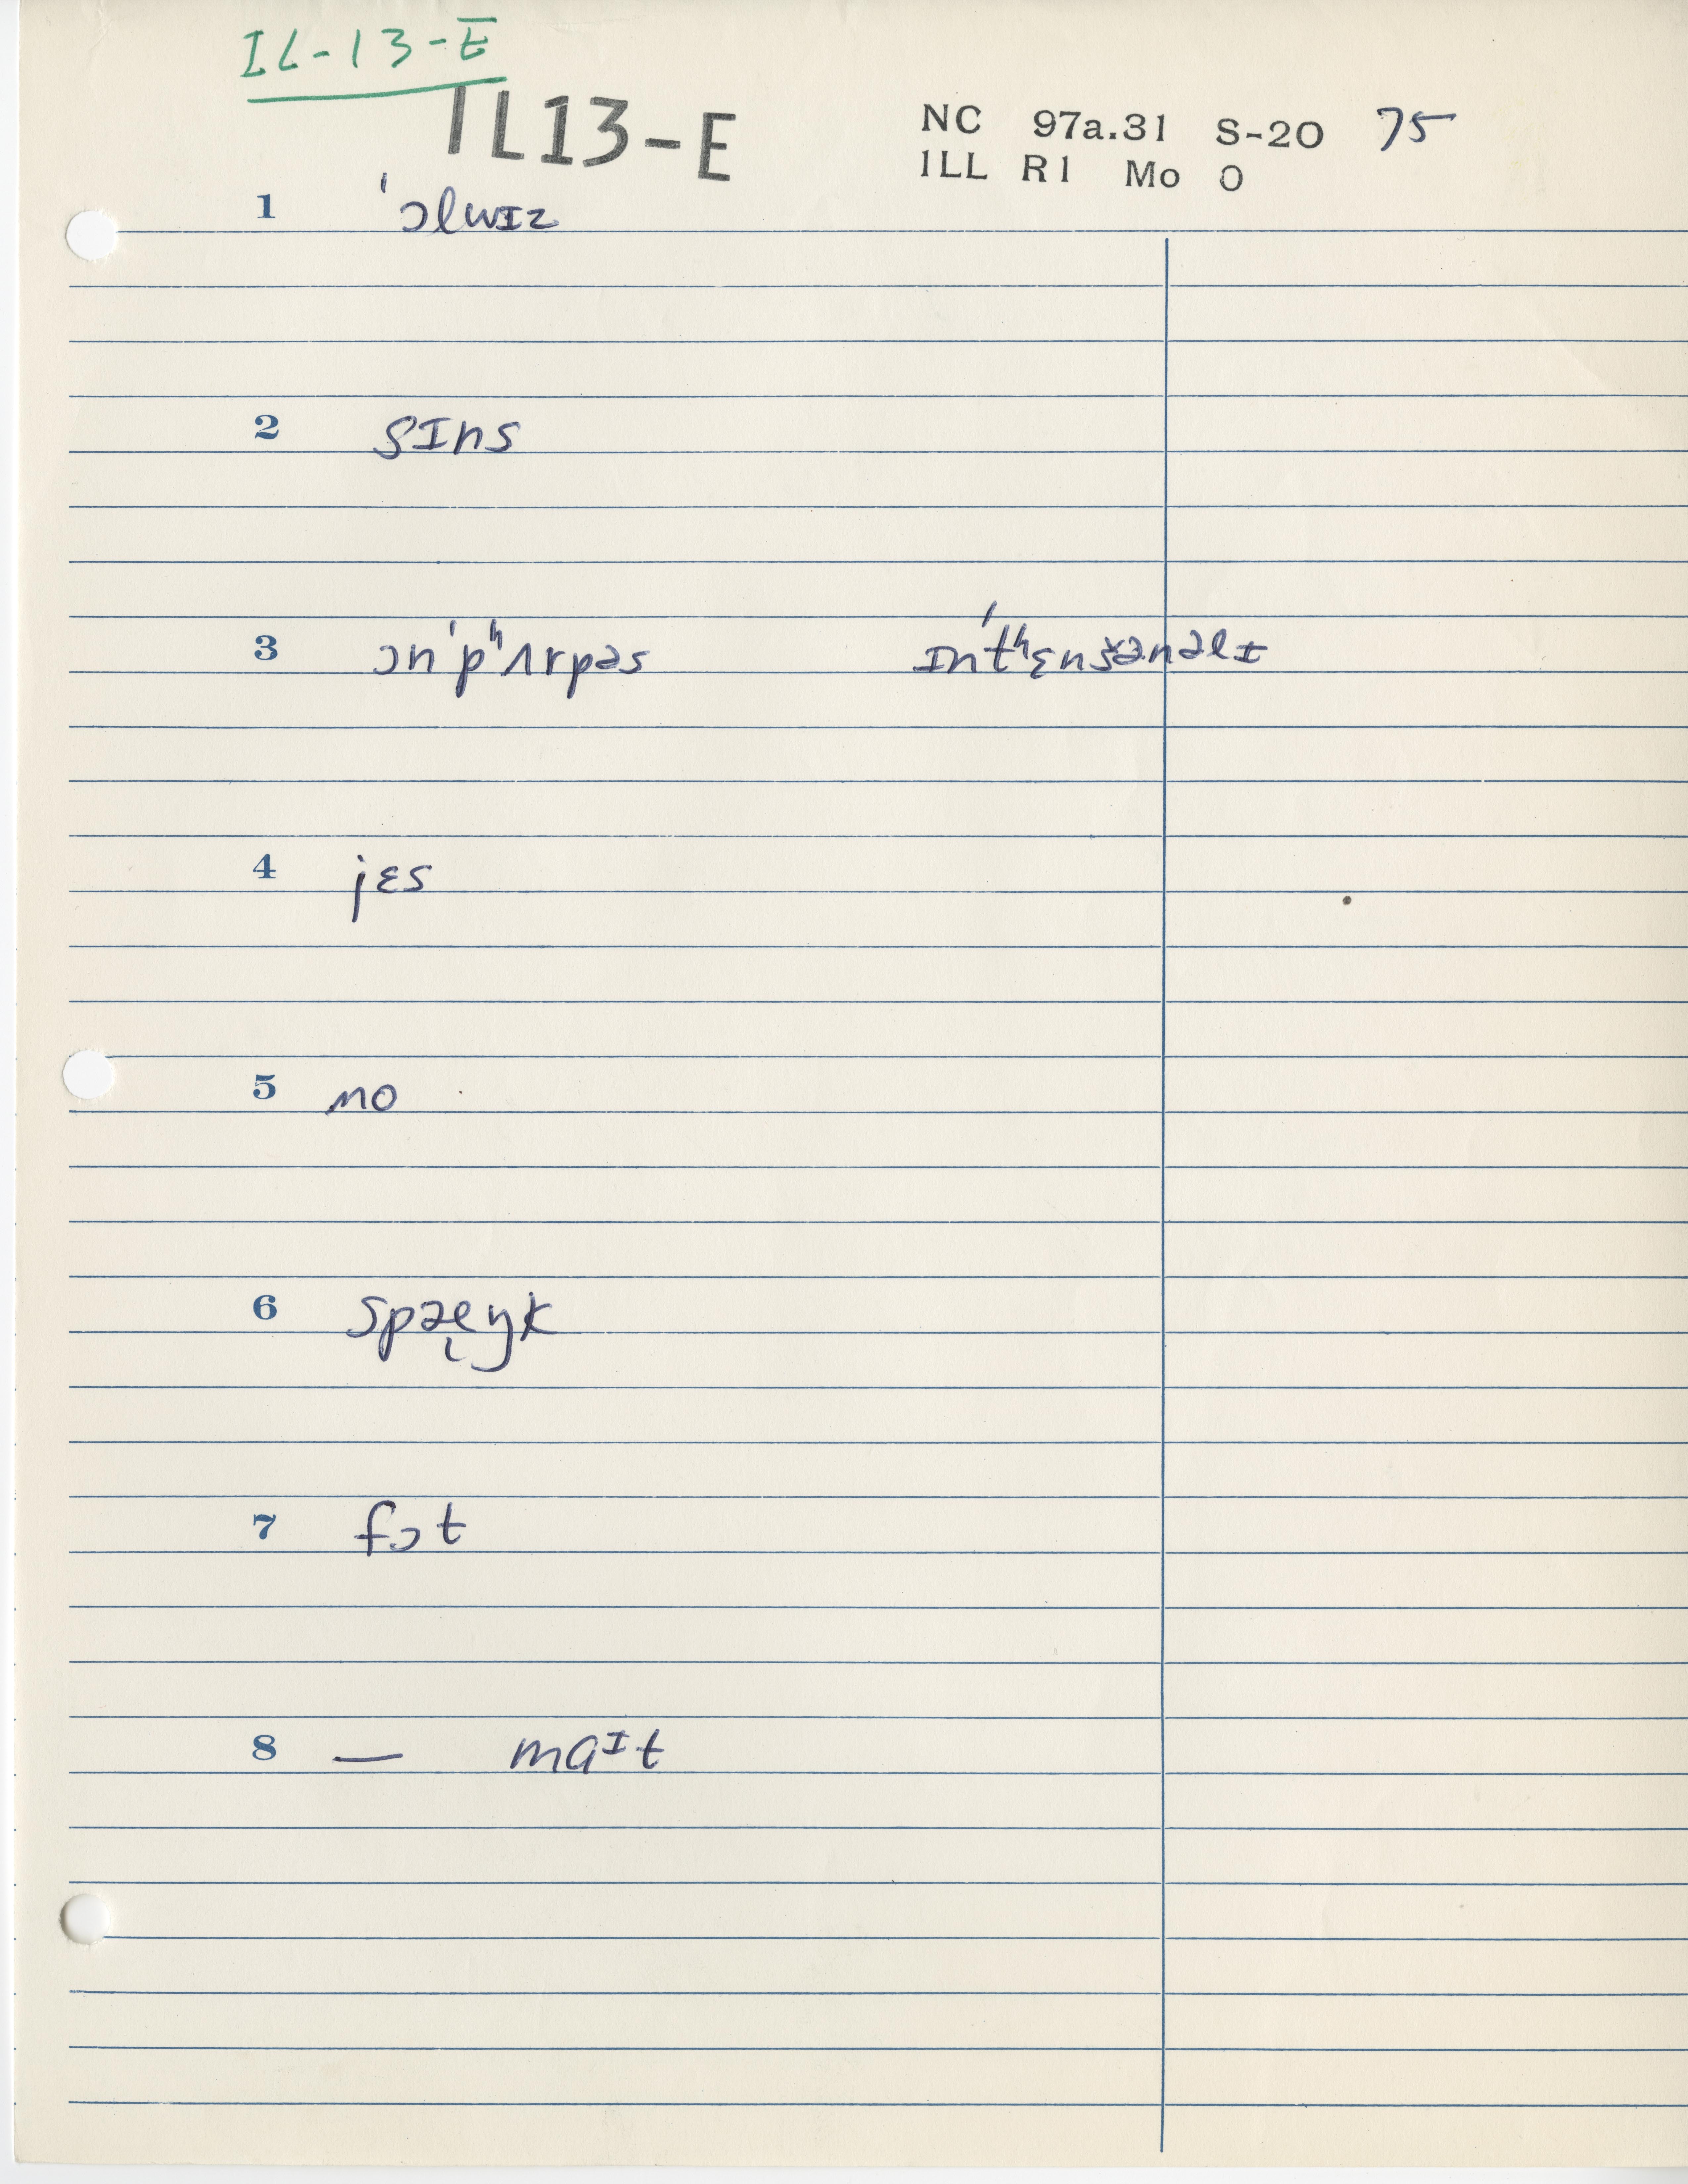 IL-13-E
IL13-E
NC 97a.31 S-20 75
ILL R1 Mo O
1 ˈɔlwɪz
2 sɪns
3 ɔnˈpʰʌrpəs ɪnˈtʰɛnšənəlɪ
4 jɛs
5 no
6 spæ̨ŋk
7 fɔt
8 — maᶦt